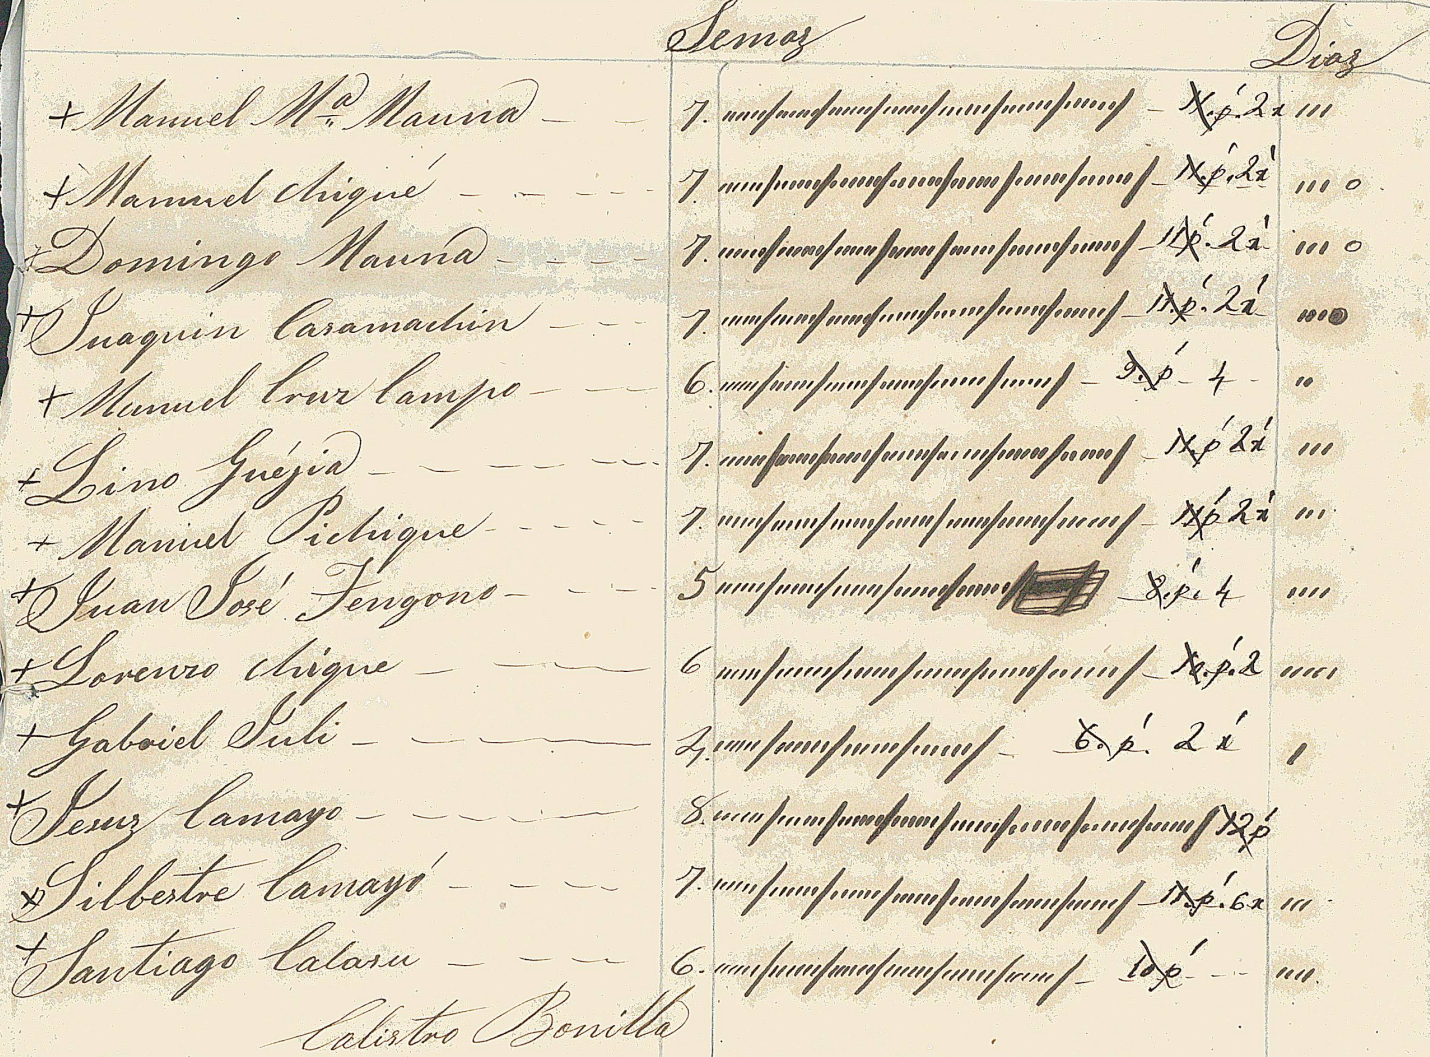 Semas Dias
+ Manuel Mª Mauna - - 7. - 11. p. 2 r
+ Manuel Chiqué - - - - 7. - 11. p. 2 r o
+ Domingo Mauna - - - - 7. - 11 p. 2 r o
+ Juaquin Casamachin - - - 7. - 11. p. 2 r
+ Manuel Cruz Campo - - - 6. - 9. p - 4 -
+ Lino Guéjia - - - - - 7. - 11. p 2 r
+ Manuel Pichique - - - - 7. - 11 p 2 r
+ Juan José Fengono - - - 5 - 8. p. 4
+ Lorenzo Chique - - - 6 - 10. p. 2
+ Gabriel Juli - - - 4. - 6. p. 2 r
+ Jesuz Camayo - - - 8. 12 p
+ Silbestre Camayó - - - 7. - 11. p. 6 r
+ Santiago Calasu - - - 6. - 10 p - -
Calistro Bonilla